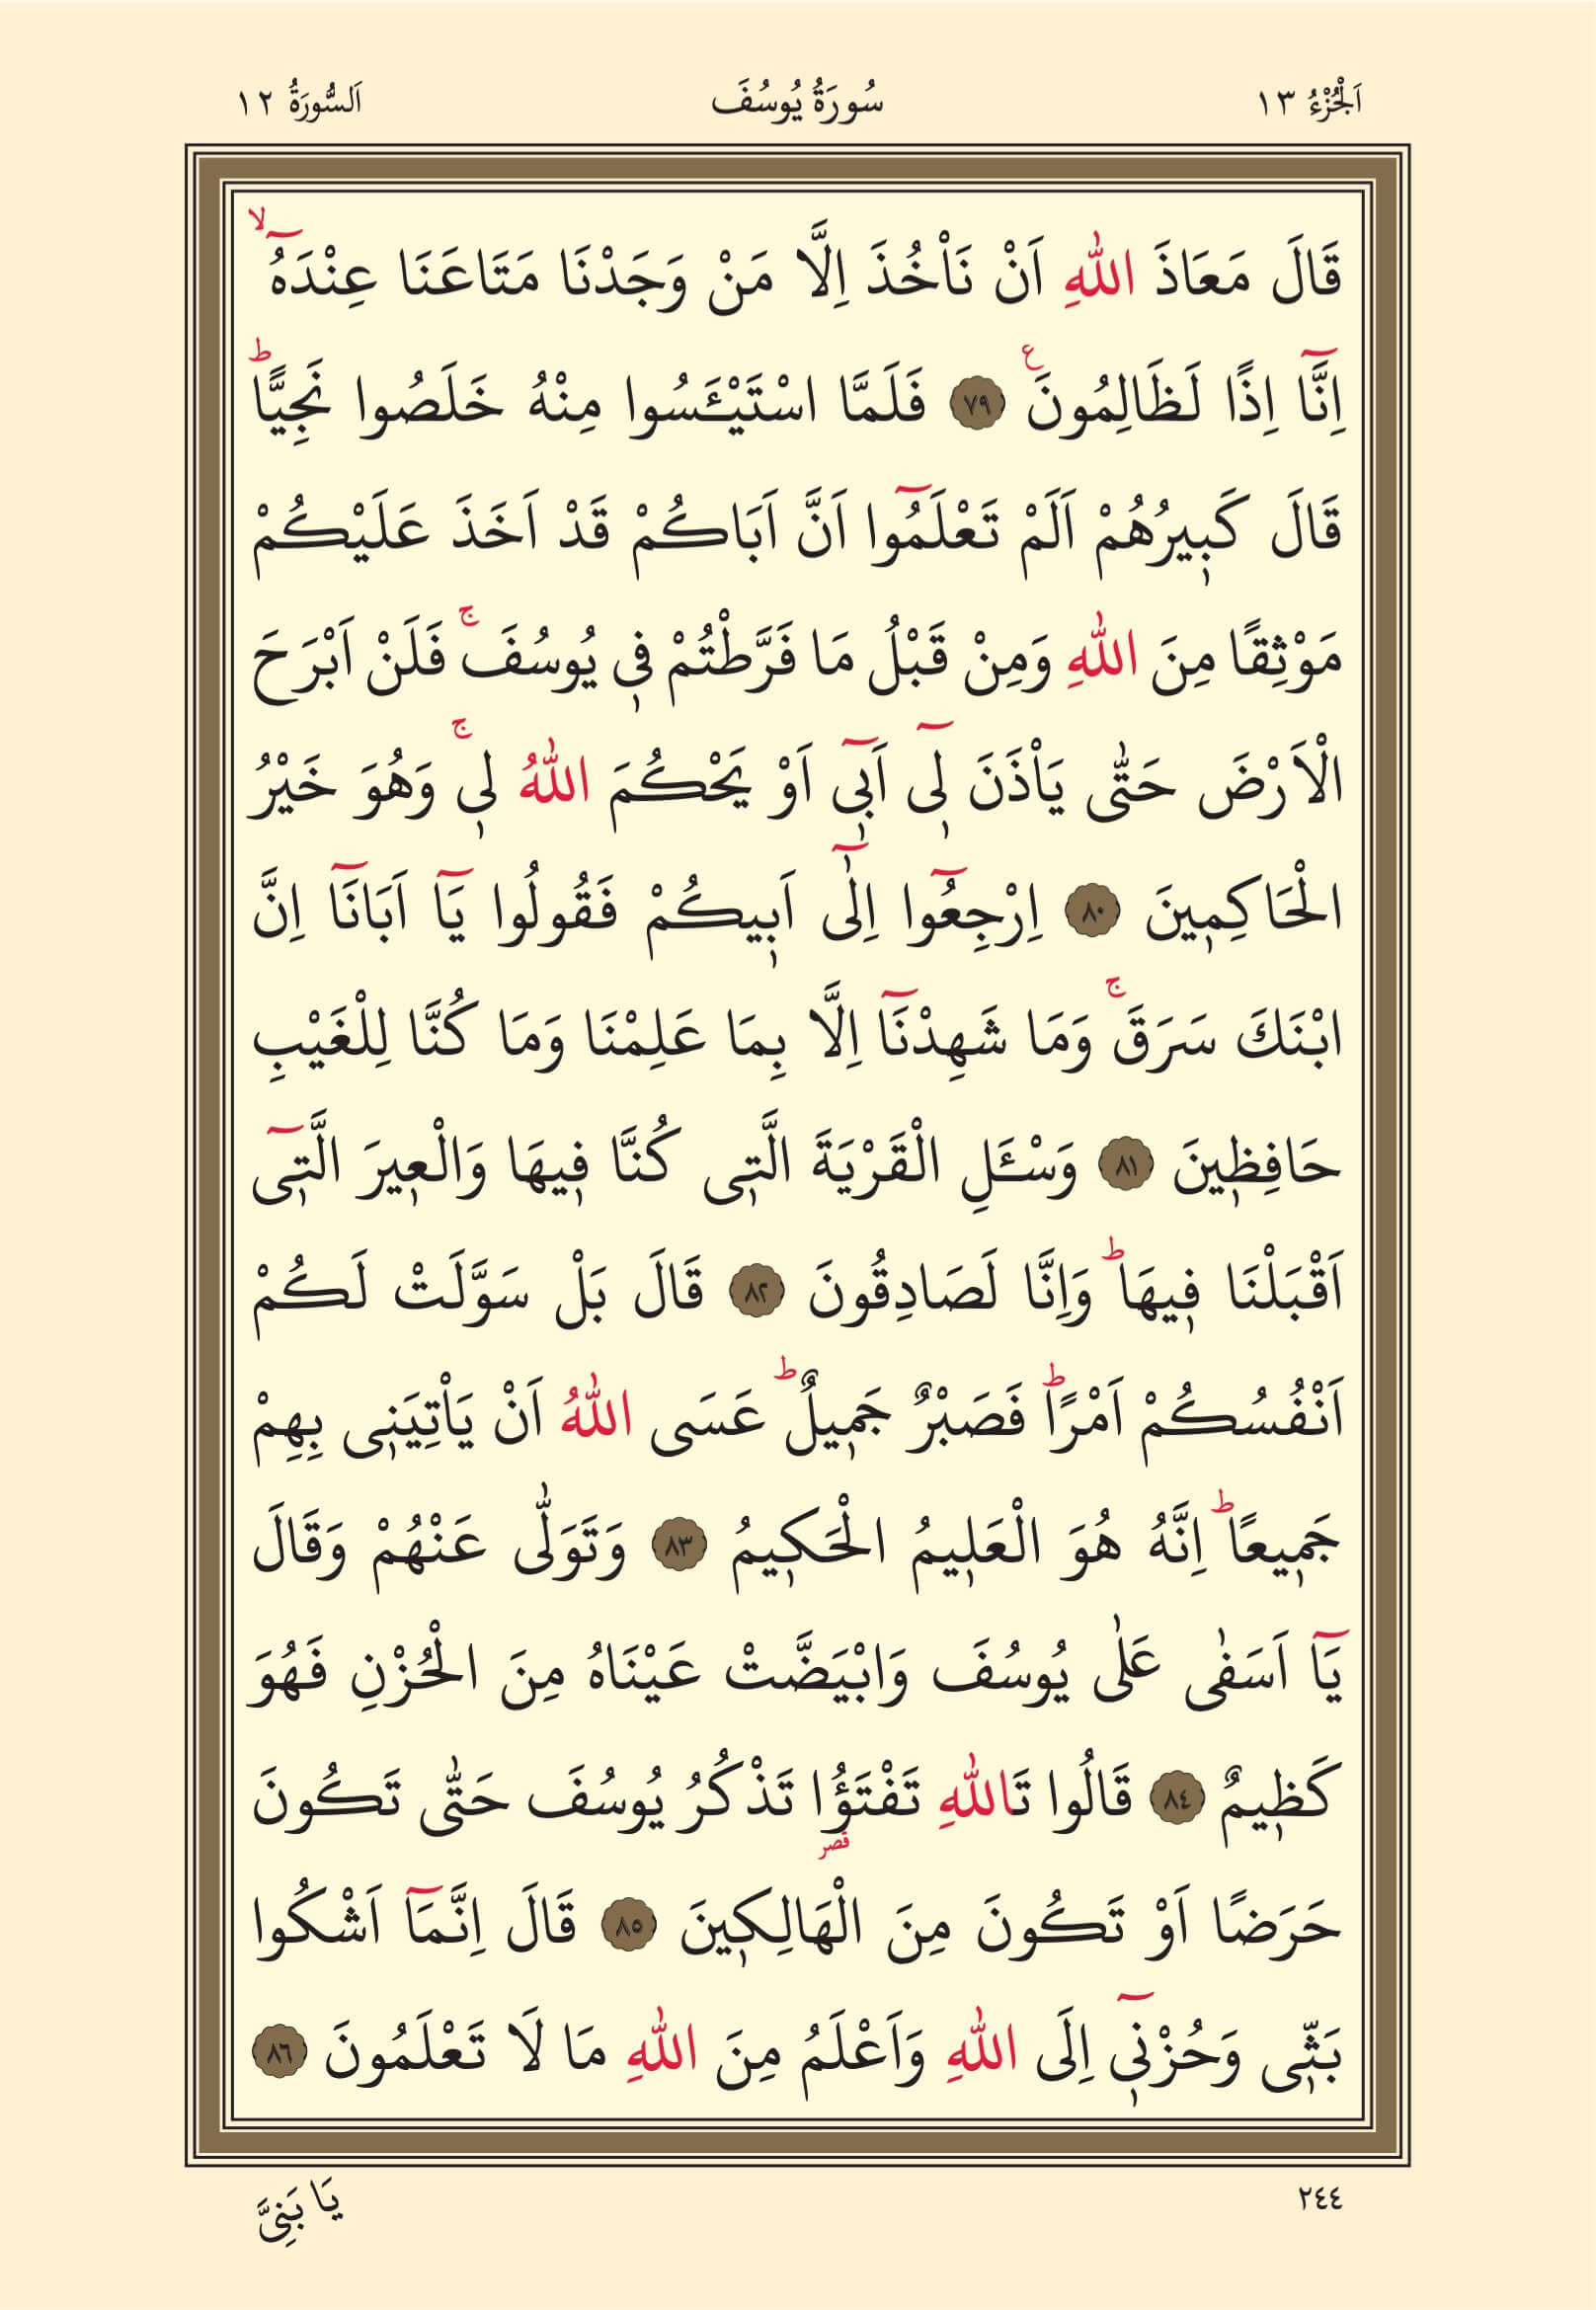 اَلْجُزْءُ ١٣
سُورَةُ يُوسُفَ
اَلسُّورَةُ ١٢
قَالَ مَعَاذَ اللّٰهِ اَنْ نَأْخُذَ اِلَّا مَنْ وَجَدْنَا مَتَاعَنَا عِنْدَهُٓ ۙ
اِنَّٓا اِذًا لَظَالِمُونَ ع ٧٩ فَلَمَّا اسْتَيْـَٔسُوا مِنْهُ خَلَصُوا نَجِيًّا ؕ
قَالَ كَب۪يرُهُمْ اَلَمْ تَعْلَمُٓوا اَنَّ اَبَاكُمْ قَدْ اَخَذَ عَلَيْكُمْ
مَوْثِقًا مِنَ اللّٰهِ وَمِنْ قَبْلُ مَا فَرَّطْتُمْ ف۪ي يُوسُفَ ۚ فَلَنْ اَبْرَحَ
الْاَرْضَ حَتّٰى يَأْذَنَ ل۪ٓي اَب۪ٓي اَوْ يَحْكُمَ اللّٰهُ ل۪ي ۚ وَهُوَ خَيْرُ
الْحَاكِم۪ينَ ٨٠ اِرْجِعُٓوا اِلٰٓى اَب۪يكُمْ فَقُولُوا يَٓا اَبَانَٓا اِنَّ
ابْنَكَ سَرَقَ ۚ وَمَا شَهِدْنَٓا اِلَّا بِمَا عَلِمْنَا وَمَا كُنَّا لِلْغَيْبِ
حَافِظ۪ينَ ٨١ وَسْـَٔلِ الْقَرْيَةَ الَّت۪ي كُنَّا ف۪يهَا وَالْع۪يرَ الَّت۪ٓي
اَقْبَلْنَا ف۪يهَا ؕ وَاِنَّا لَصَادِقُونَ ٨٢ قَالَ بَلْ سَوَّلَتْ لَكُمْ
اَنْفُسُكُمْ اَمْرًا ؕ فَصَبْرٌ جَم۪يلٌ ؕ عَسَى اللّٰهُ اَنْ يَأْتِيَن۪ي بِهِمْ
جَم۪يعًا ؕ اِنَّهُ هُوَ الْعَل۪يمُ الْحَك۪يمُ ٨٣ وَتَوَلّٰى عَنْهُمْ وَقَالَ
يَٓا اَسَفٰى عَلٰى يُوسُفَ وَابْيَضَّتْ عَيْنَاهُ مِنَ الْحُزْنِ فَهُوَ
كَظ۪يمٌ ٨٤ قَالُوا تَاللّٰهِ تَفْتَؤُ۬ا تَذْكُرُ يُوسُفَ حَتّٰى تَكُونَ
قصر
حَرَضًا اَوْ تَكُونَ مِنَ الْهَالِك۪ينَ ٨٥ قَالَ اِنَّمَٓا اَشْكُوا
بَثّ۪ي وَحُزْن۪ٓي اِلَى اللّٰهِ وَاَعْلَمُ مِنَ اللّٰهِ مَا لَا تَعْلَمُونَ ٨٦
٢٤٤
يَا بَنِيَّ